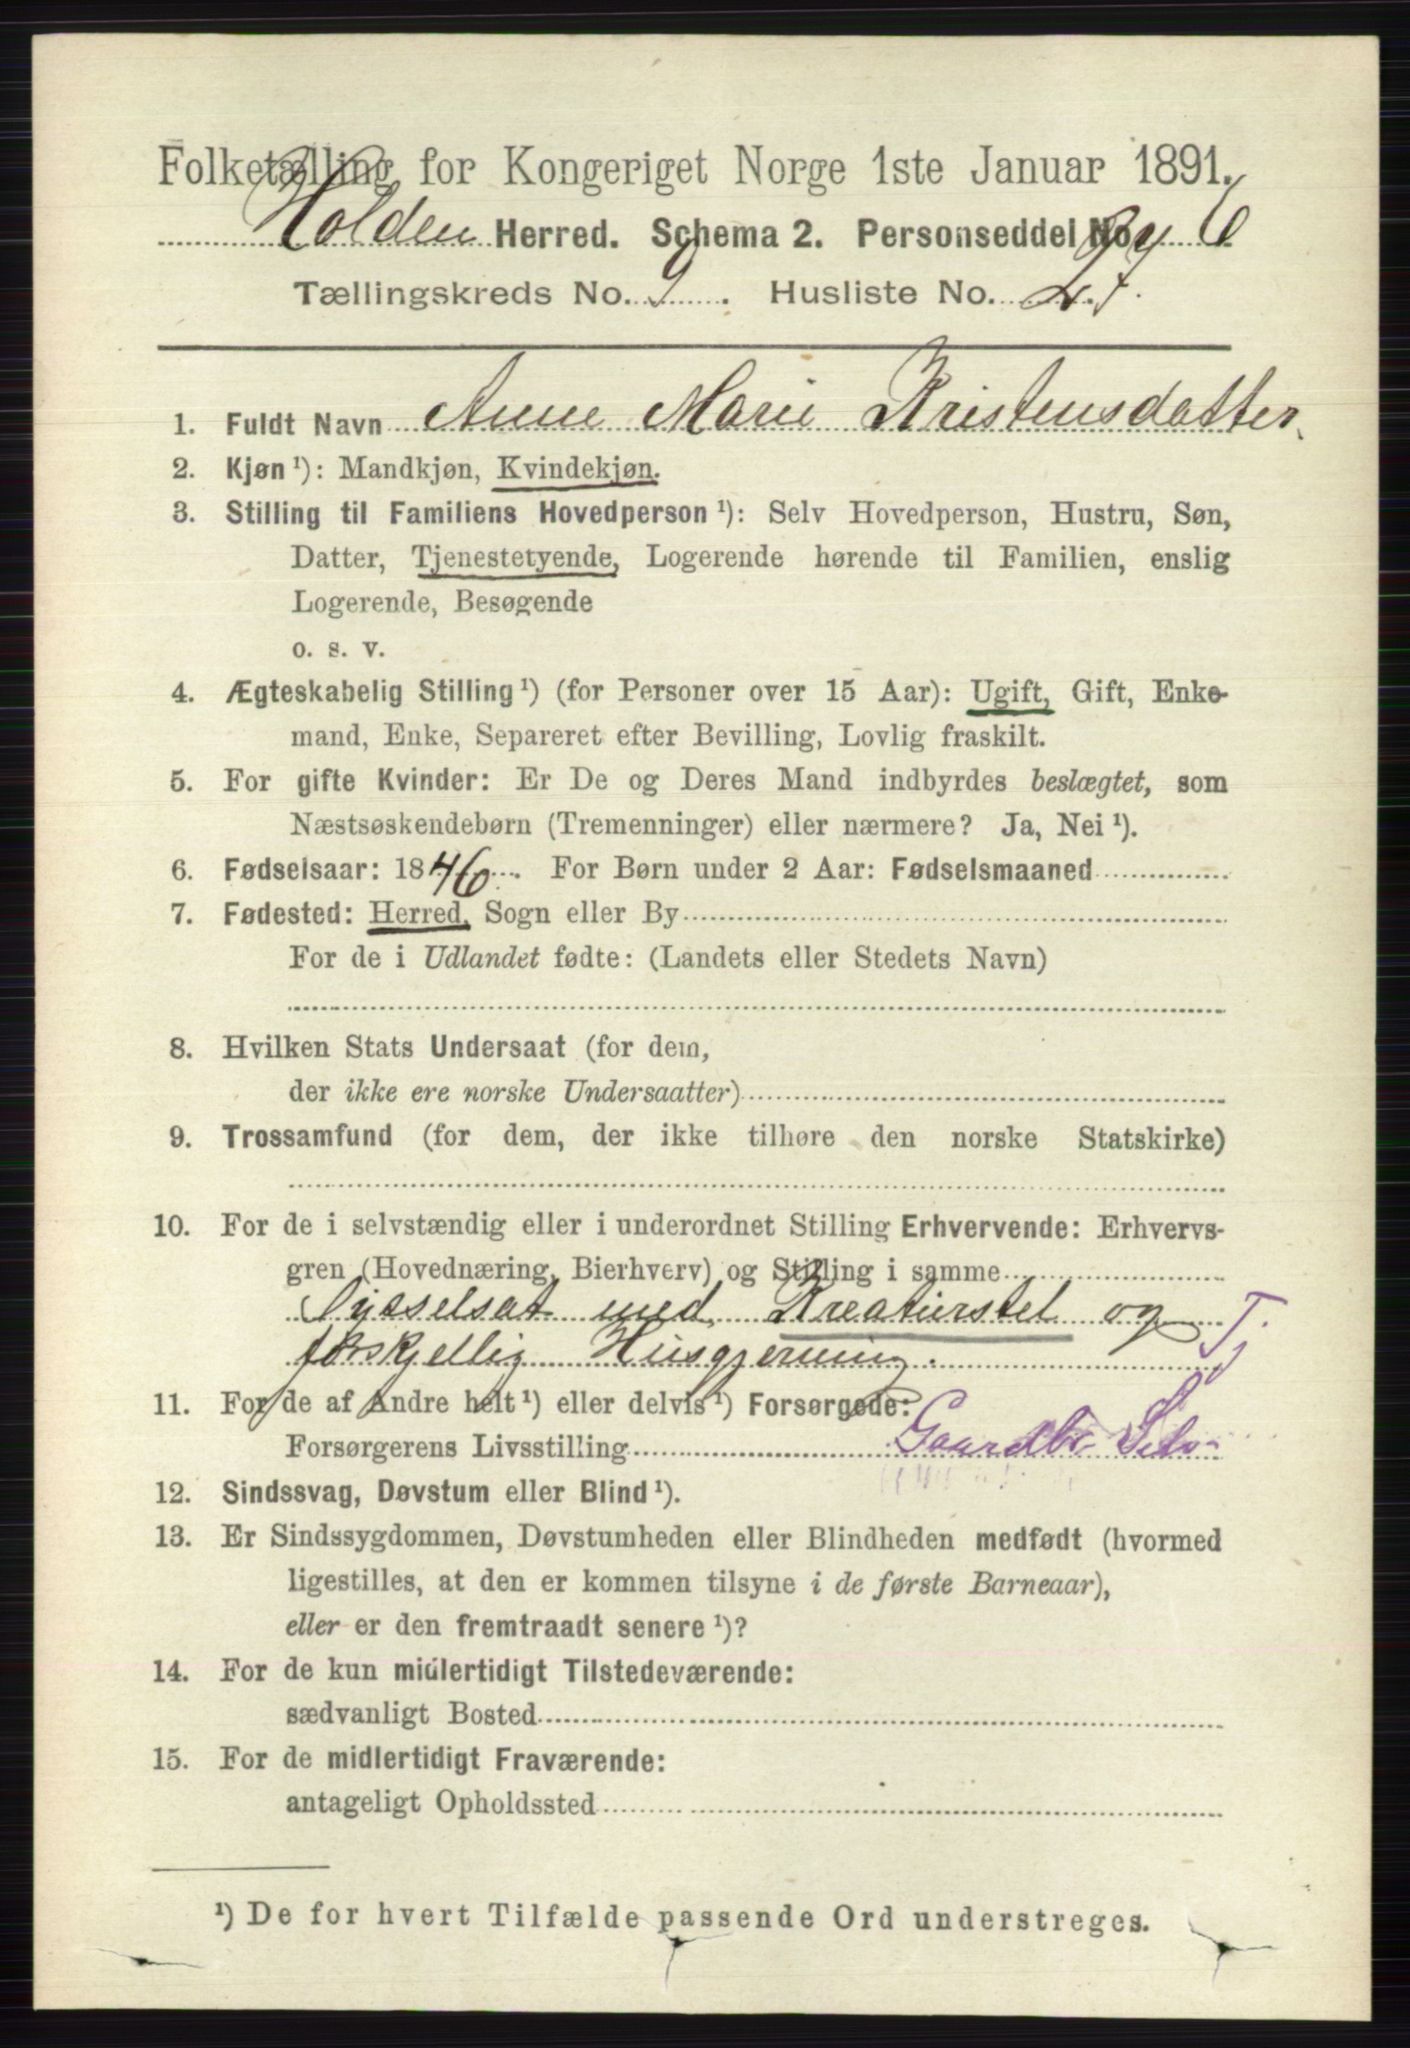 Folketælling for Kongeriget Norge 1ste Januar 1891.
Holden Herred. Schema 2. Personseddel No. 6
Tællingskreds No. 9. Husliste No.
1. Fuldt Navn Anne Marie Kristensdatter
2. Kjøn ¹): Mandkjøn, Kvindekjøn.
3. Stilling til Familiens Hovedperson ¹): Selv Hovedperson, Hustru, Søn,
Datter, Tjenestetyende, Logerende hørende til Familien, enslig
Logerende, Besøgende
o. s. v.
4. Ægteskabelig Stilling ¹) (for Personer over 15 Aar): Ugift, Gift, Enke-
mand, Enke, Separeret efter Bevilling, Lovlig fraskilt.
5. For gifte Kvinder: Er De og Deres Mand indbyrdes beslægtet, som
Næstsøskendebørn (Tremenninger) eller nærmere? Ja, Nei ¹).
6. Fødselsaar: 1846. For Børn under 2 Aar: Fødselsmaaned
7. Fødested: Herred, Sogn eller By
For de i Udlandet fødte: (Landets eller Stedets Navn)
8. Hvilken Stats Undersaat (for dem,
der ikke ere norske Undersaatter)
9. Trossamfund (for dem, der ikke tilhøre den norske Statskirke)
10. For de i selvstændig eller i underordnet Stilling Erhvervende: Erhvervs-
gren (Hovednæring, Bierhverv) og Stilling i samme
Sysselsat med Kreaturstel og
forskjellig Husgjerning. Tj
11. For de af Andre helt ¹) eller delvis ¹) Forsørgede:
Forsørgerens Livsstilling Gaardbr
12. Sindssvag, Døvstum eller Blind ¹).
13. Er Sindssygdommen, Døvstumheden eller Blindheden medfødt (hvormed
ligestilles, at den er kommen tilsyne i de første Barneaar),
eller er den fremtraadt senere ¹)?
14. For de kun midlertidigt Tilstedeværende:
sædvanligt Bosted
15. For de midlertidigt Fraværende:
antageligt Opholdssted
¹) De for hvert Tilfælde passende Ord understreges.